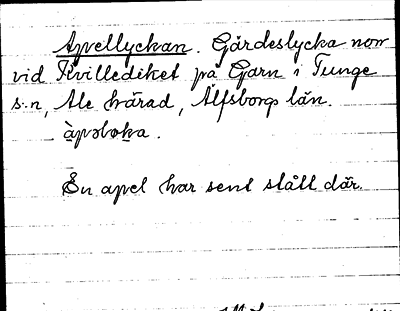 Apellyckan. Gärdeslycka norr
vid Kvillediket på Garn i Tunge
s:n, Ale härad, Älfsborgs län.
àpəloka.
En apel har sent stått där.